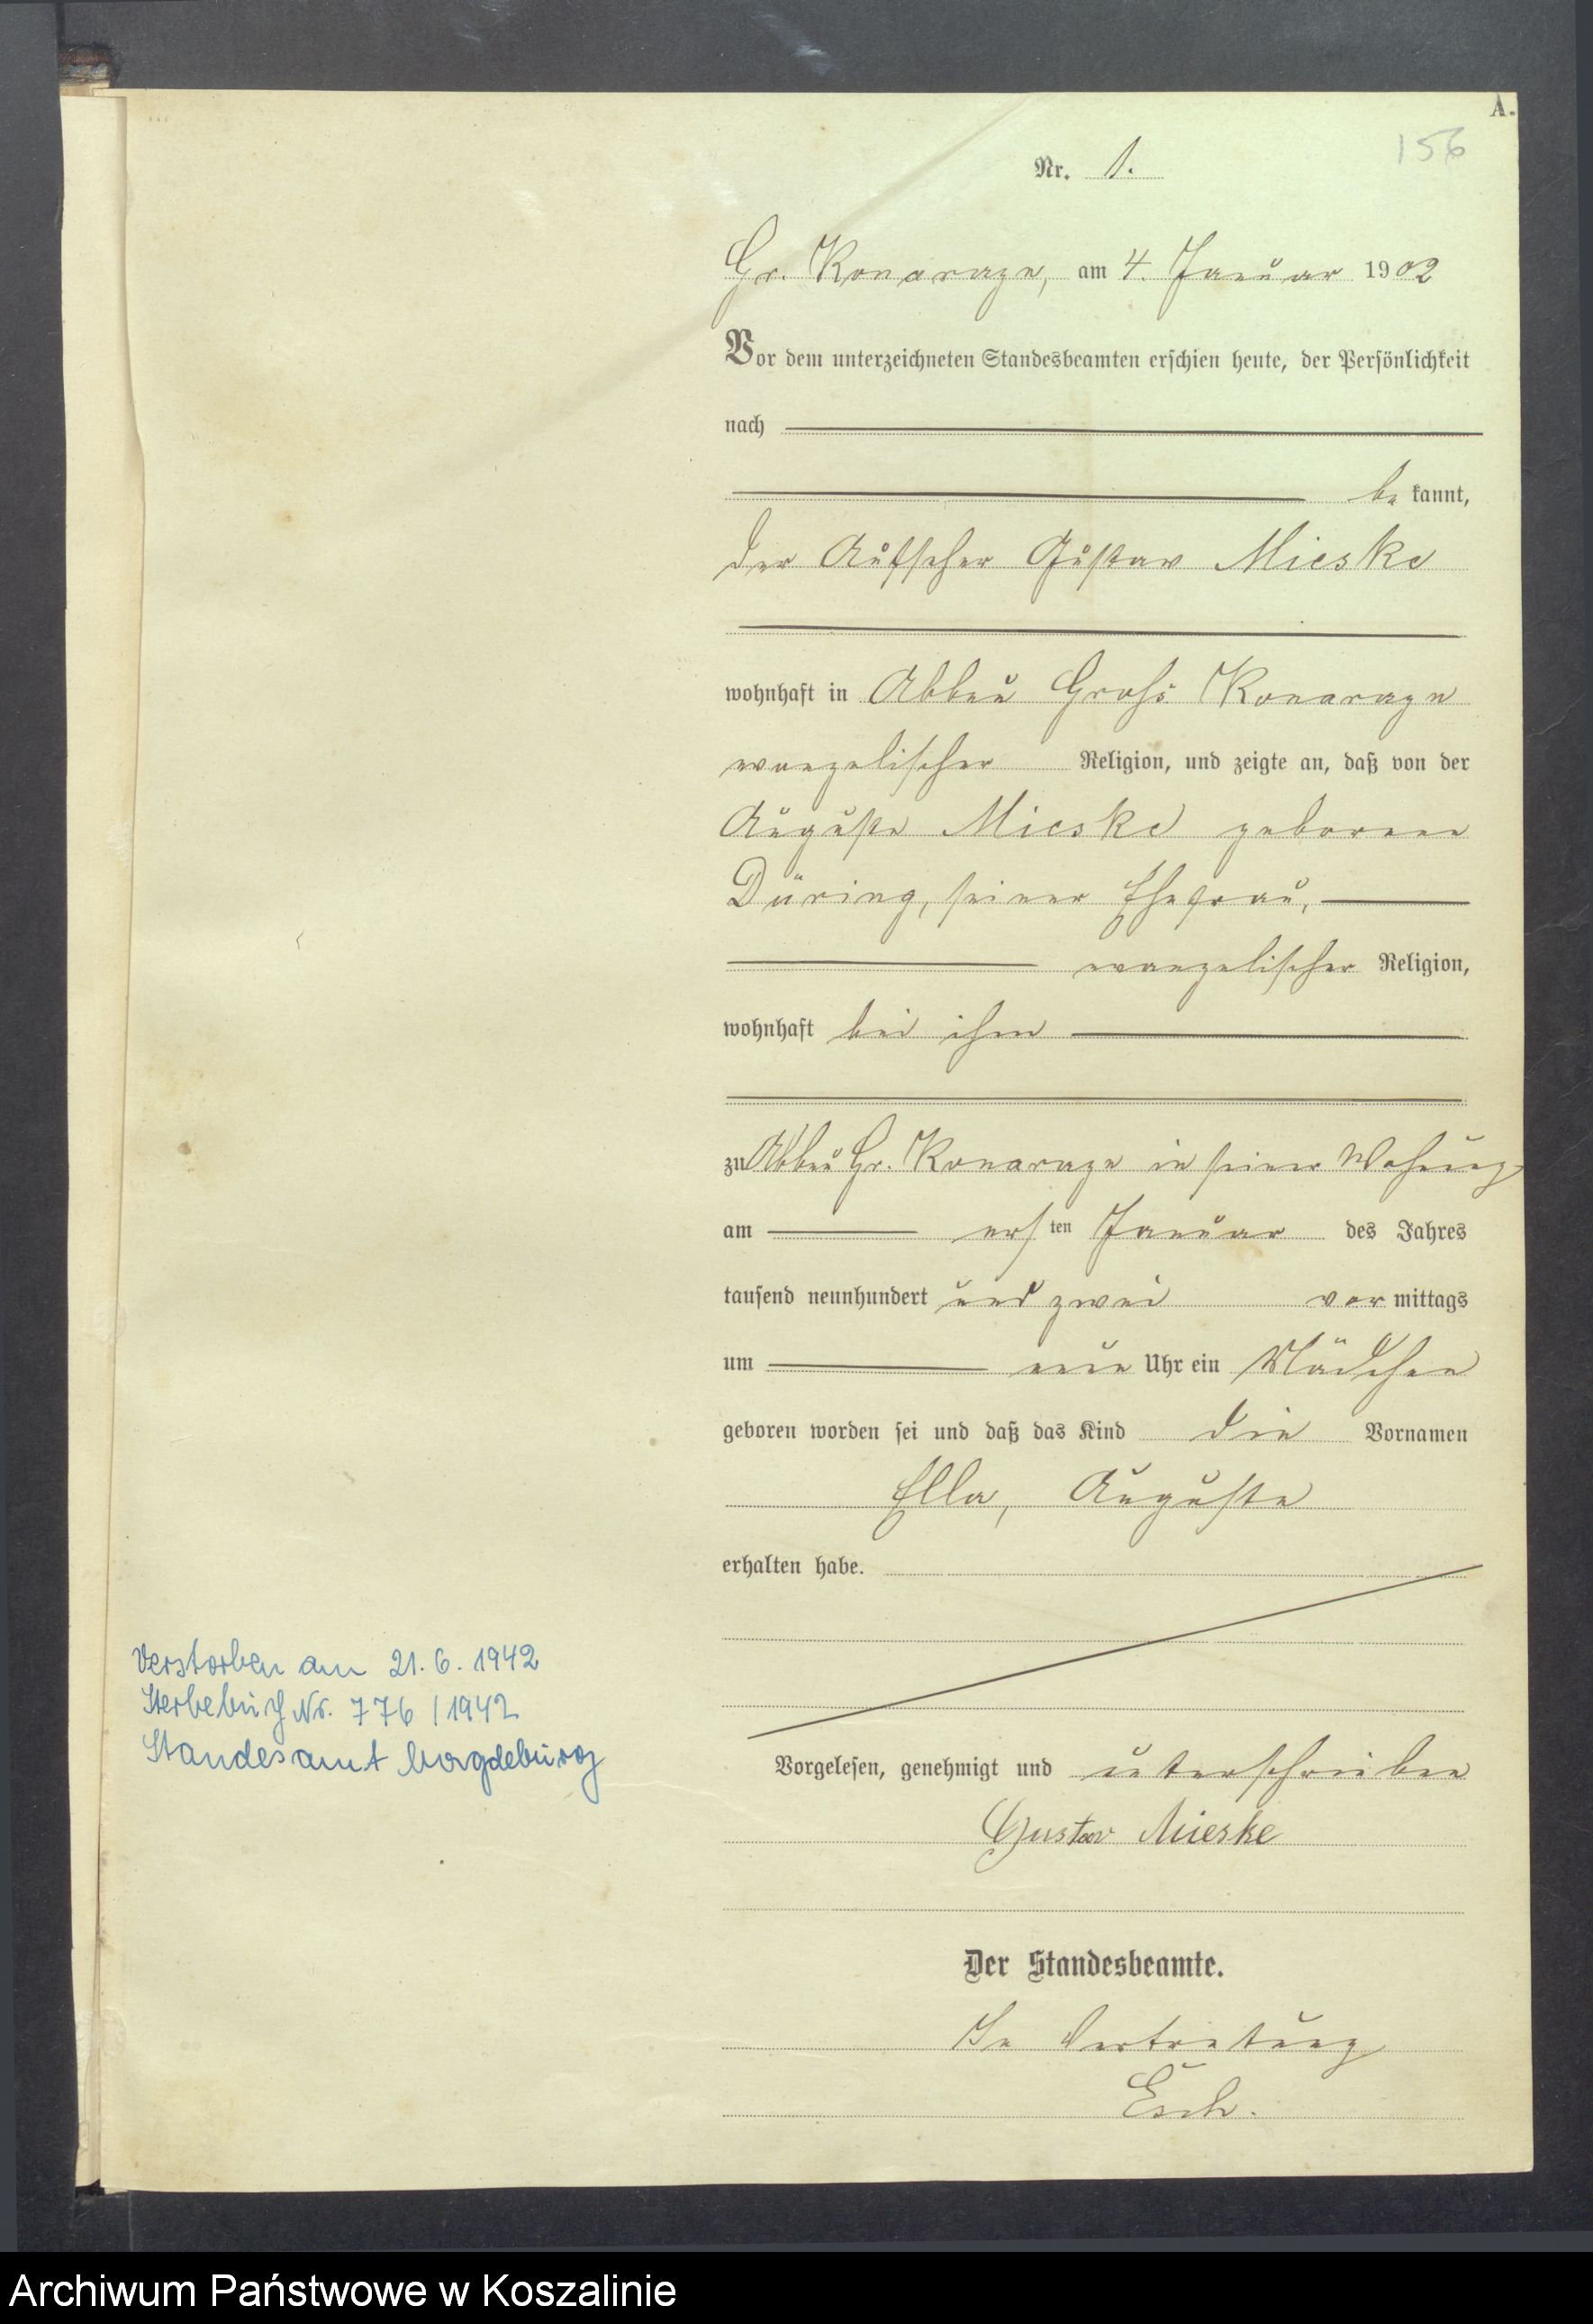 A.
156
Nr. 1.
Gr. Konarzyn, am 4. Januar 1902
Vor dem unterzeichneten Standesbeamten erschien heute, der Persönlichkeit
nach
be kannt,
der Aufseher Gustav Mieske
wohnhaft in Abbau Gross Konarzyn
evangelischer Religion, und zeigte an, daß von der
Auguste Mieske geborenen
Düring, seiner Ehefrau,
evangelischer Religion,
wohnhaft bei ihm
zu Abbau Gr. Konarzyn in seiner Wohnung
am ersten Januar des Jahres
tausend neunhundert und zwei vor mittags
um neun Uhr ein Mädchen
geboren worden sei und daß das Kind die Vornamen
Ella, Auguste
erhalten habe.
Vorgelesen, genehmigt und unterschrieben
Gustav Mieske
Der Standesbeamte.
In Vertretung
Esch.
Verstorben am 21. 6. 1942
Sterbebuch Nr. 776 / 1942
Standesamt Magdeburg
Archiwum Państwowe w Koszalinie